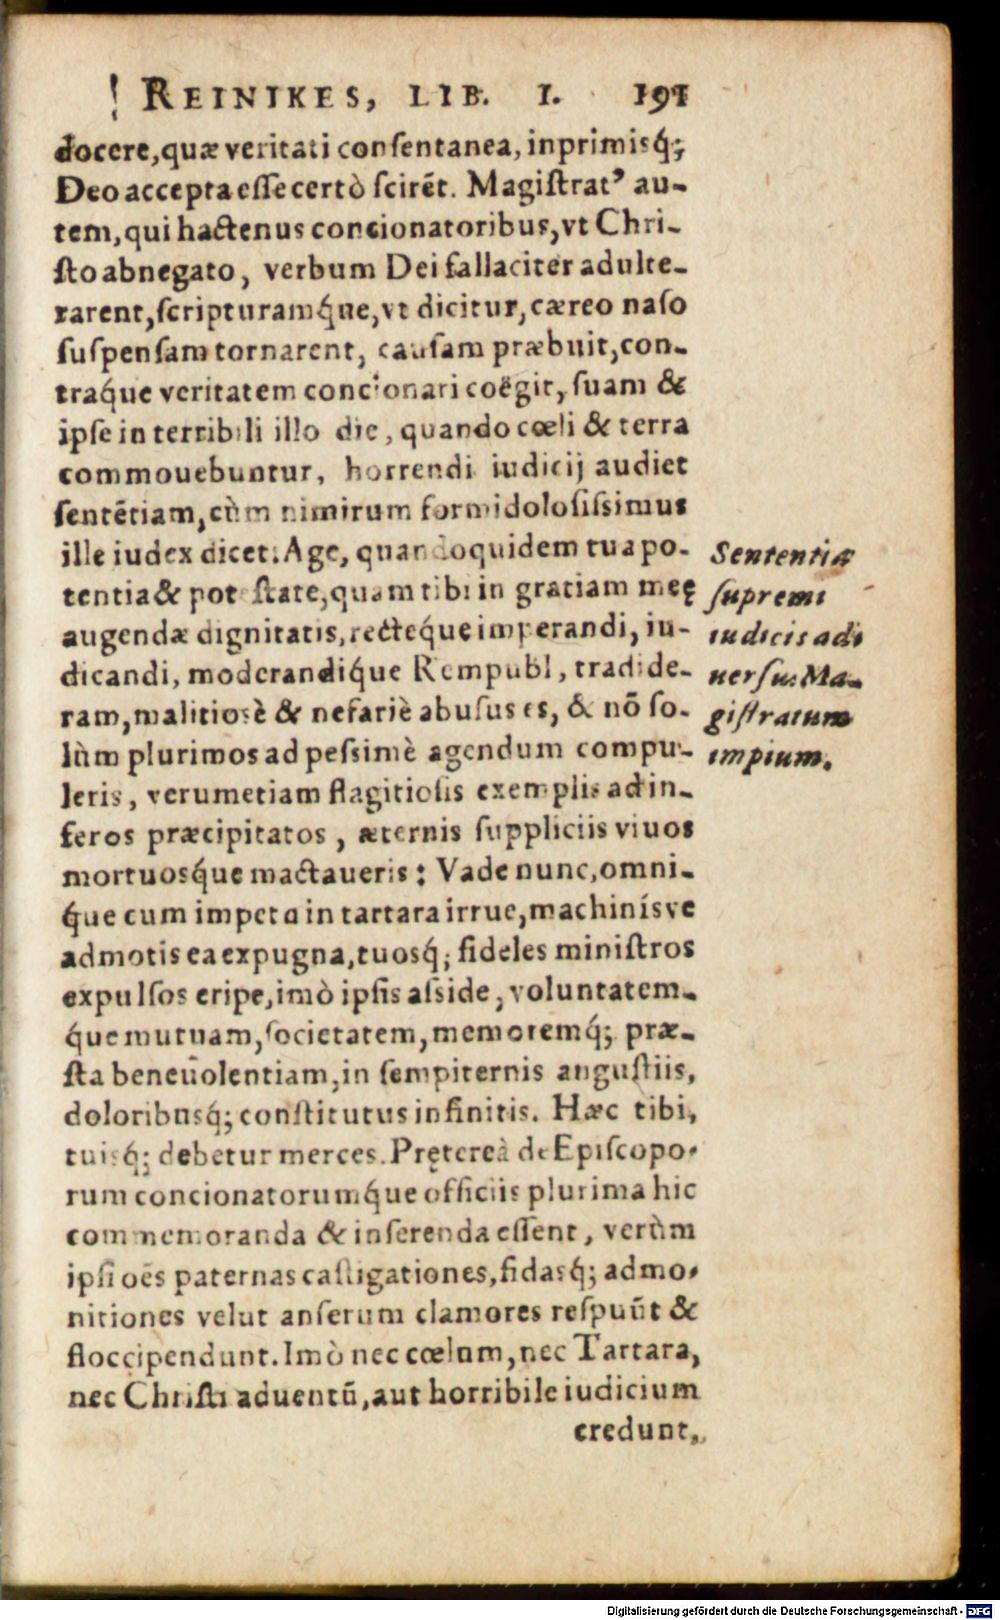 REINIKES, LIB. I. 191
docere, quæ veritati conſentanea, inprimisq́;
Deo accepta eſſe certò ſcirēt. Magiſtratꝰ au-
tem, qui hactenus concionatoribus, vt Chri-
ſto abnegato, verbum Dei fallaciter adulte-
rarent, ſcripturamq́ue, vt dicitur, cæreo naſo
ſuſpenſam tornarent, cauſam præbuit, con-
traq́ue veritatem concionari coëgit, ſuam &
ipſe in terribili illo die, quando cœli & terra
commouebuntur, horrendi iudicij audiet
ſentētiam, cùm nimirum formidoloſiſsimus
ille iudex dicet: Age, quandoquidem tua po-
tentia & poteſtate, quam tibi in gratiam meę
augendæ dignitatis, recteq́ue imperandi, iu-
dicandi, moderandiq́ue Rempubl, tradide-
ram, malitiosè & nefariè abuſus es, & nō ſo-
lùm plurimos ad peſsimè agendum compu-
leris, verumetiam flagitioſis exemplis ad in-
feros præcipitatos, æternis ſuppliciis viuos
mortuosq́ue mactaueris: Vade nunc, omni-
q́ue cum impetu in tartara irrue, machinísve
admotis ea expugna, tuosq́; fideles miniſtros
expulſos eripe, imò ipſis aſside, voluntatem-
q́ue mutuam, ſocietatem, memoremq́; præ-
ſta beneuolentiam, in ſempiternis anguſtiis,
doloribusq́; conſtitutus infinitis. Hæc tibi,
tuisq́; debetur merces. Prętereà de Epiſcopo-
rum concionatorumq́ue officiis plurima hic
commemoranda & inſerenda eſſent, verùm
ipſi oēs paternas caſtigationes, fidasq́; admo-
nitiones velut anſerum clamores reſpuūt &
floccipendunt. Imò nec cœlum, nec Tartara,
nec Chriſti aduentū, aut horribile iudicium
credunt,
Sententiæ
ſupremi
iudicis ad-
uerſus Ma-
giſtratum
impium.
Digitalisierung gefördert durch die Deutsche Forschungsgemeinschaft - DFG